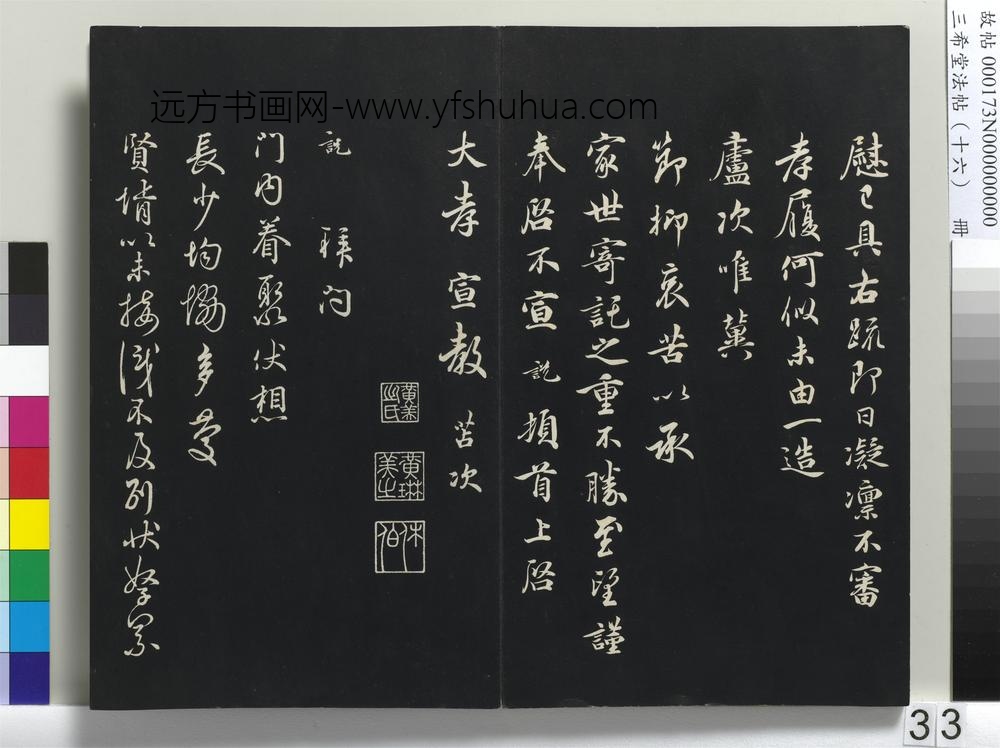 慰已具右疏即日凝凛不審
孝履何似未由一造
廬次唯冀
節抑哀苦以承
家世寄託之重不勝至望謹
奉啓不宣 説 頓首上啓
大孝 宣教 苫次
黄美之氏
黄琳美之
休伯
説 猥问
门内眷聚伏想
長少均協多慶
賢壻以未接識不及列状孥累
远方书画网-www.yfshuhua.com
故帖 000173N000000000
三希堂法帖（十六） 冊
33